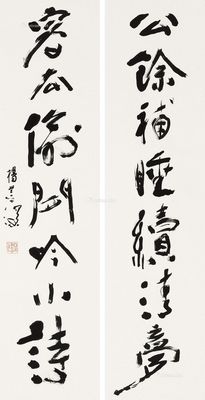 公餘補睡續清夢
客去偷閒吟小詩